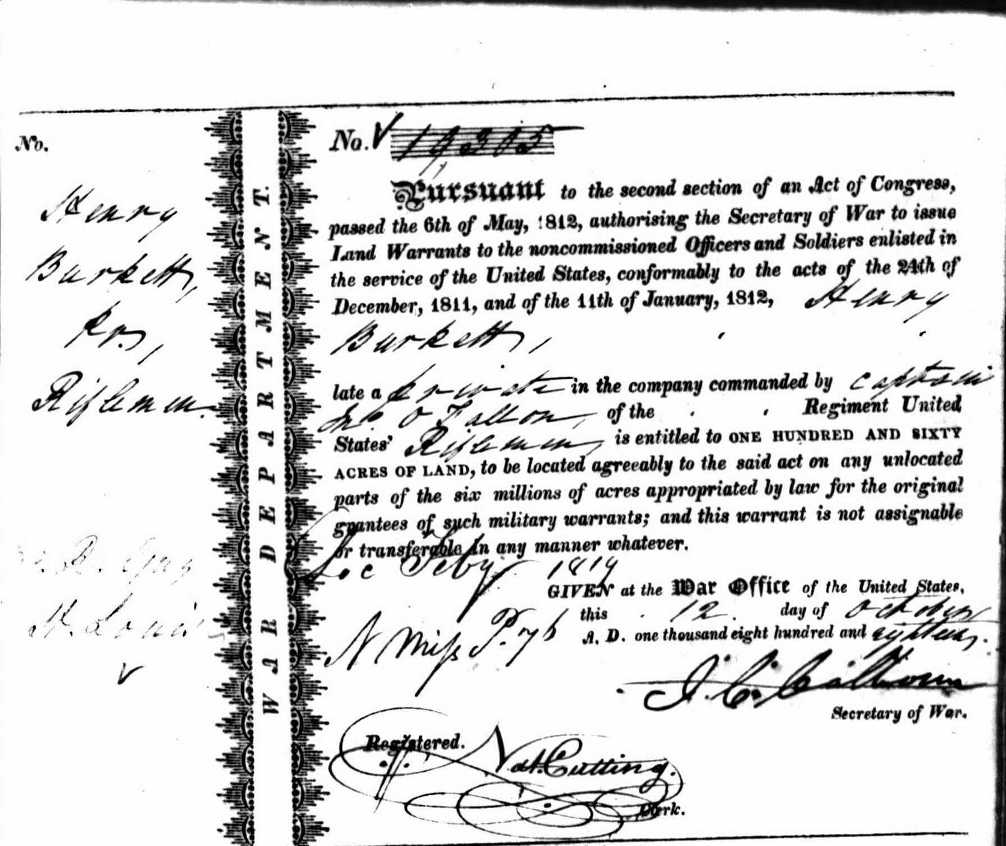 No.
Henry
Burkett,
Rifleman.
St. Louis
WAR DEPARTMENT.
No. 19,305
Pursuant to the second section of an Act of Congress,
passed the 6th of May, 1812, authorising the Secretary of War to issue
Land Warrants to the noncommissioned Officers and Soldiers enlisted in
the service of the United States, conformably to the acts of the 24th of
December, 1811, and of the 11th of January, 1812, Henry
Burkett,
late a private in the company commanded by captain
Jno O'Fallon, of the Regiment United
States' Riflemen, is entitled to ONE HUNDRED AND SIXTY
ACRES OF LAND, to be located agreeably to the said act on any unlocated
parts of the six millions of acres appropriated by law for the original
grantees of such military warrants; and this warrant is not assignable
or transferable in any manner whatever.
Loc Feby 1819
GIVEN at the War Office of the United States,
this 12 day of October
A. D. one thousand eight hundred and eighteen.
N Miss
J. C. Calhoun
Secretary of War.
Registered.
Nat. Cutting.
Clerk.